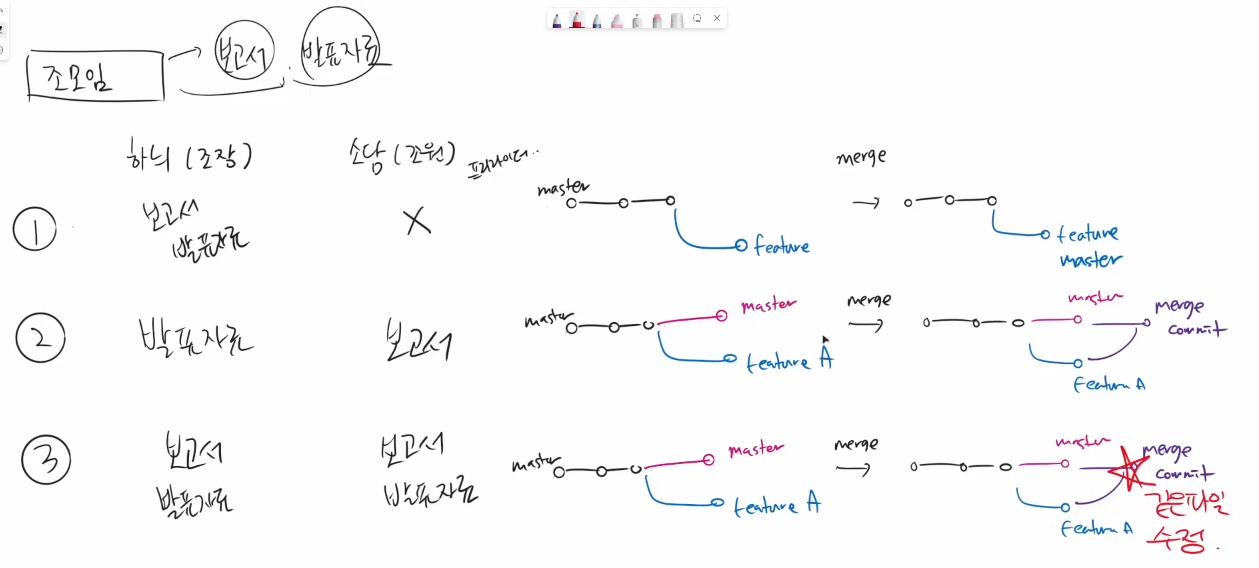 조모임
보고서, 발표자료
하늬 (조장)
소담 (조원)
프리라이더..
merge
①
보고서
발표자료
X
master
feature
feature
master
②
발표자료
보고서
master
master
feature A
merge
master
merge
commit
feature A
③
보고서
발표자료
보고서
발표자료
master
master
feature A
merge
master
merge
commit
feature A
같은파일
수정.